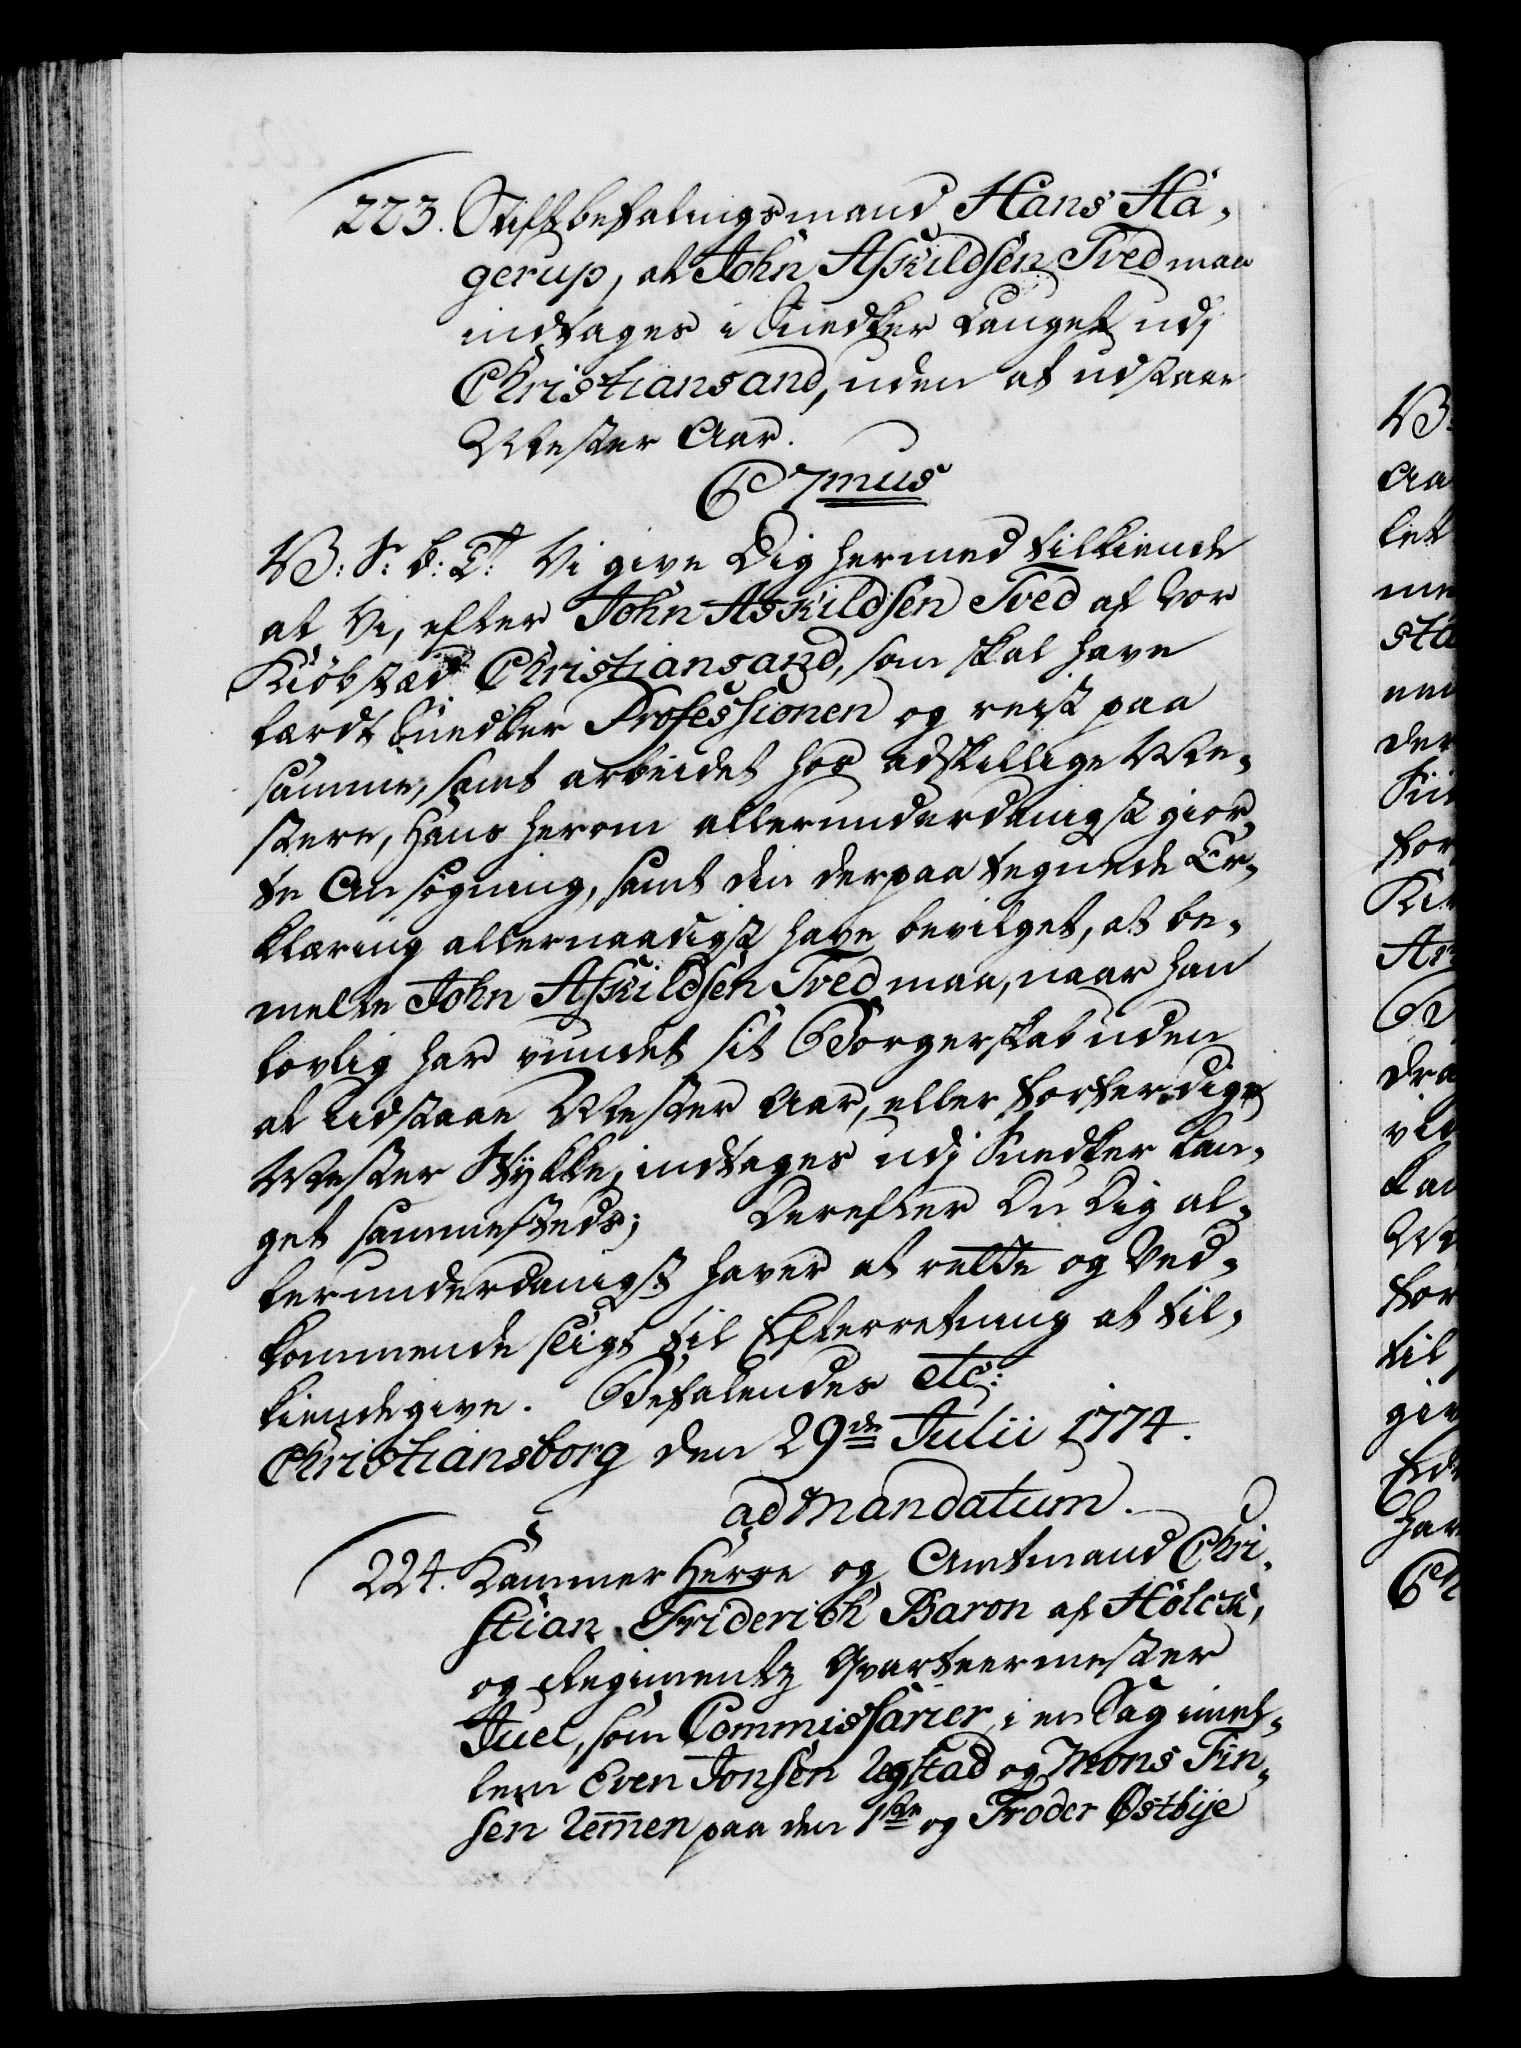 223. Stiftbefalingsmand Hans Ha-
gerup, at John Askildsen Tved maa
indtages i Snedker Lauget udj
Christiansand, uden at udstaae
Mester Aar.
C 7mus
V: S: b: T: Vi give Dig hermed tilkiende
at Vi, efter John Askildsen Tved af Vor
Kiöbstæd Christiansand, som skal have
lærdt Snedker Professionen og reist paa
samme, samt arbeidet hos adskillige Me-
stere, Hans herom allerunderdanigst gior-
te Ansögning, samt din derpaa tegnede Er-
klæring allernaadigst have bevilget, at be-
melte John Askildsen Tved maa, naar han
lovlig har vundet sit Borgerskab uden
at Udstaae Mester Aar, eller forferdige
Mester Stykke, indtages udj Snedker Lau-
get sammesteds; Derefter Du Dig al-
lerunderdanigst haver at rette og Ved-
kommende sligt til Efterretning at til-
kiendegive. Befalendes etc:
Christiansborg den 29de Julii 1774.
ad Mandatum.
224. Kammer Herre og Amtmand Chri-
stian Friderich Baron af Holck,
og Regiments Qvarteermester
Juel, som Commissarier, i en Sag imel-
lem Even Jonsen Uegstad og Mons Fin-
sen Uemen paa den 1ste og Troder Østbye